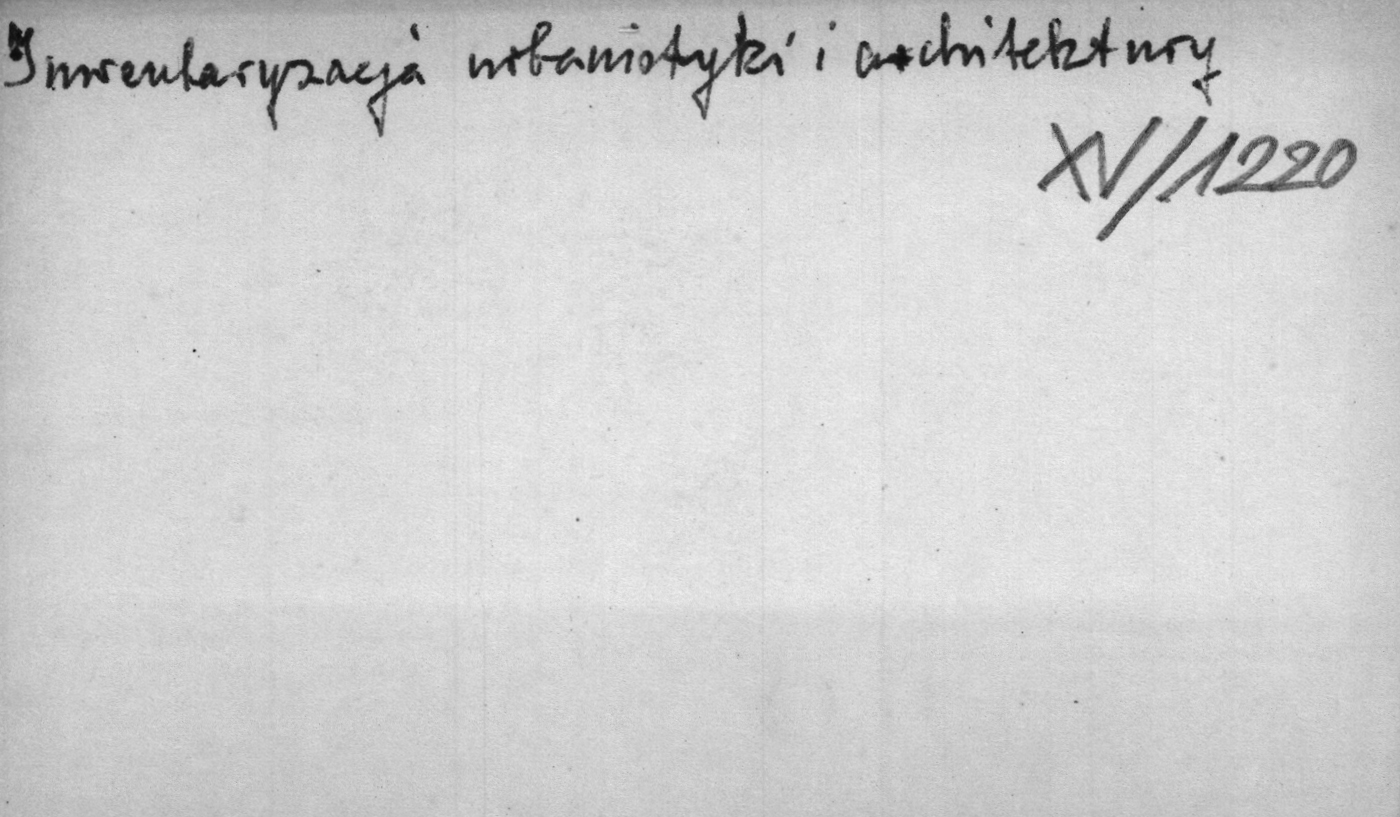 Inwentaryzacja urbanistyki i architektury
XV/1220